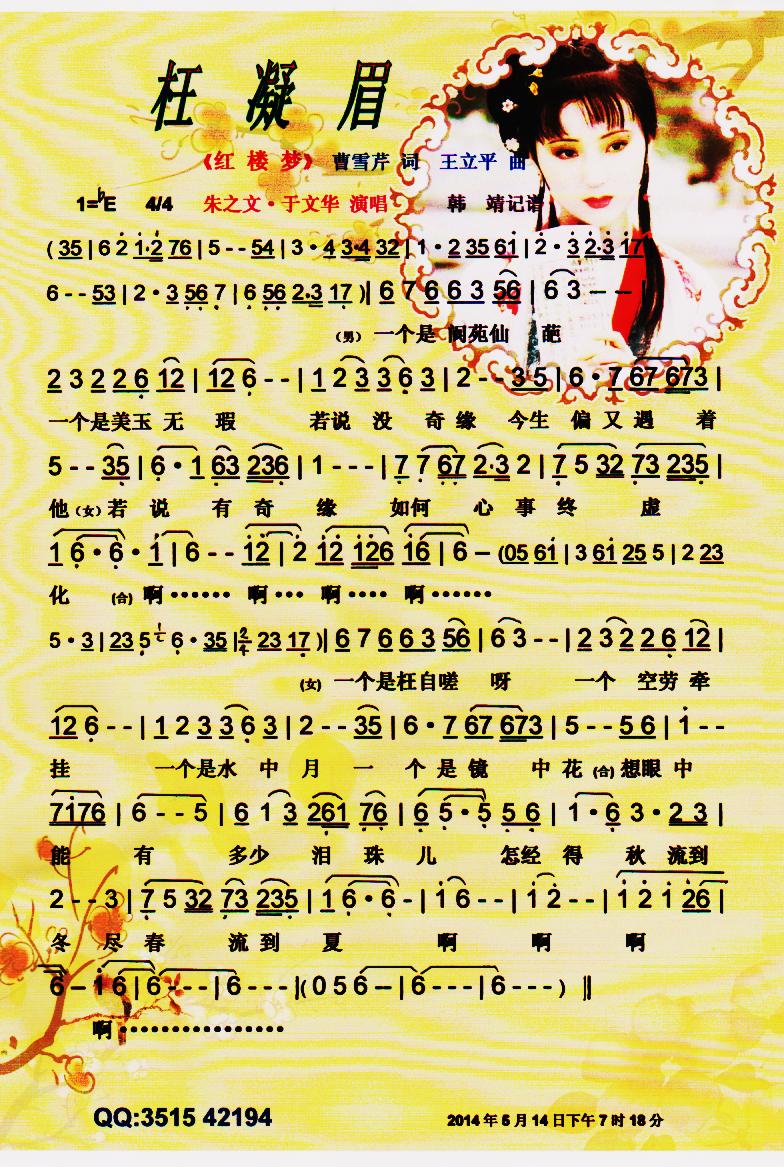 枉凝眉
《红楼梦》 曹雪芹 词 王立平 曲
1=♭E 4/4 朱之文·于文华 演唱 韩 靖记谱
( 35 | 6 2 1·2 76 | 5 - - 54 | 3 · 4 3·4 32 | 1 · 2 35 61 | 2 · 3 2·3 17
6 - - 53 | 2 · 3 56 7 | 6 56 2·3 17 )| 6 7 6 6 3 56 | 6 3 - - |
(男) 一个是 阆苑仙 葩
2 3 2 2 6 12 | 12 6 - - | 1 2 3 3 6 3 | 2 - - 3 5 | 6 · 7 67 673 |
一个是美玉 无 瑕 若说 没 奇缘 今生 偏又遇 着
5 - - 35 | 6 · 1 63 236 | 1 - - - | 7 7 67 2·3 2 | 7 5 32 73 235 |
他 (女) 若 说 有 奇 缘 如何 心 事 终 虚
1 6 · 6 · 1 | 6 - - 12 | 2 12 126 16 | 6 – (05 61 | 3 61 25 5 | 2 23
化 (合) 啊······ 啊··· 啊···· 啊······
5 · 3 | 23 5 6 · 35 | 2/4 23 17 )| 6 7 6 6 3 56 | 6 3 - - | 2 3 2 2 6 12 |
(女) 一个是枉自嗟 呀 一个 空劳 牵
12 6 - - | 1 2 3 3 6 3 | 2 - - 35 | 6 · 7 67 673 | 5 - - 5 6 | 1 - -
挂 一个是水 中 月 一 个 是 镜 中 花 (合) 想眼 中
7176 | 6 - - 5 | 6 1 3 261 76 | 6 5 · 5 5 6 | 1 · 6 3 · 2 3 |
能 有 多少 泪 珠 儿 怎经 得 秋 流到
2 - - 3 | 7 5 32 73 235 | 1 6 · 6 - | 1 6 - - | 1 2 - - | 1 2 1 26 |
冬 尽 春 流到 夏 啊 啊 啊
6 – 1 6 | 6 - - - | 6 - - - |( 0 5 6 – | 6 - - - | 6 - - - ) ‖
啊················
QQ:3515 42194 2014 年 5 月 14 日下午 7 时 18 分